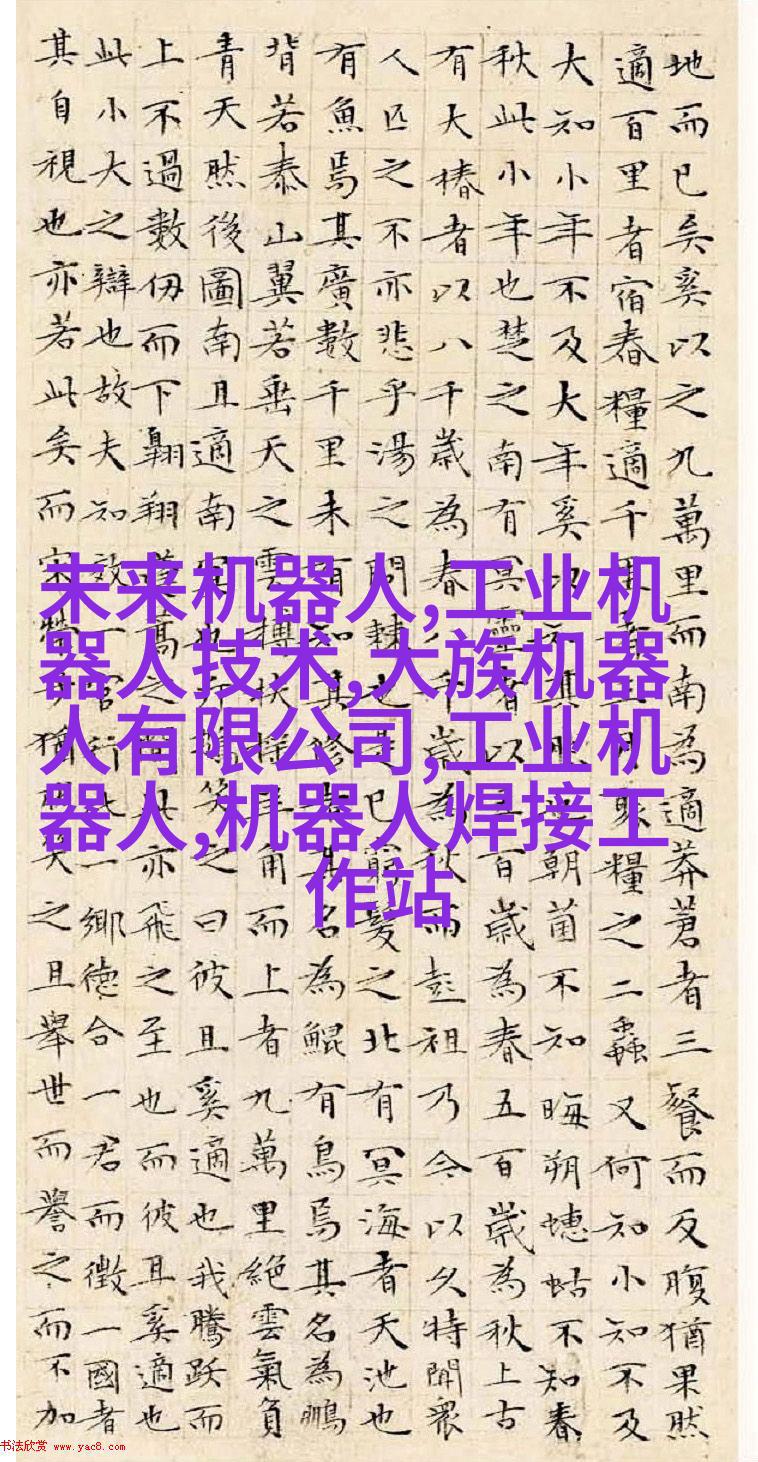 地而已矣奚以之九萬里而南為適莽蒼者三餐而反腹猶果然
適百里者宿舂糧適千里者三月聚糧之二蟲又何知小知不及
大知小年不及大年奚以知其然也朝菌不知晦朔蟪蛄不知春
秋此小年也楚之南有冥靈者以五百歲為春五百歲為秋上古
有大椿者以八千歲為春八千歲為秋而彭祖乃今以久特聞眾
人匹之不亦悲乎湯之問棘也是已窮髮之北有冥海者天池也
有魚焉其廣數千里未有知其修者其名為鯤有鳥焉其名為鵬
背若泰山翼若垂天之雲摶扶搖羊角而上者九萬里絕雲氣負
青天然後圖南且適南冥也斥笑之曰彼且奚適也我騰躍而
上不過數仞而下翱翔蓬蒿之間此亦飛之至也而彼且奚適也
此小大之辯也故夫知效一官行比一鄉德合一君而徵一國者
其自視也亦若此矣而宋榮子猶然笑之且舉世而譽之而不加
未来机器人,工业机
器人技术,大族机器
人有限公司,工业机
器人,机器人焊接工
作站
书法欣赏 www.yac8.com